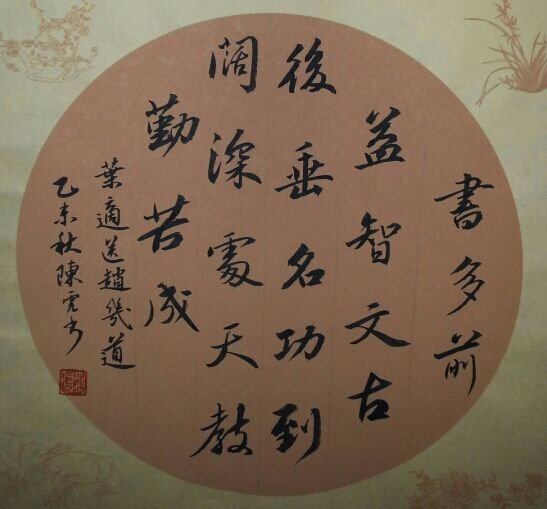 書多前
益智文古
後垂名功到
闊深處天教
勤苦成
葉適送趙幾道
乙未秋陳亮书